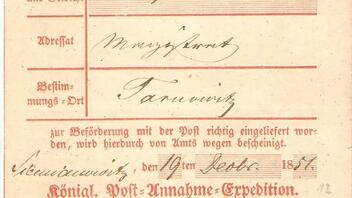 Adressat Magistrat
Bestim-
mungs-Ort Tarnowitz
zur Beförderung mit der Post richtig eingeliefert wor-
den, wird hierdurch von Amts wegen bescheinigt.
Siemianowitz, den 19ten Decbr. 1851.
Königl. Post-Annahme-Expedition.
12